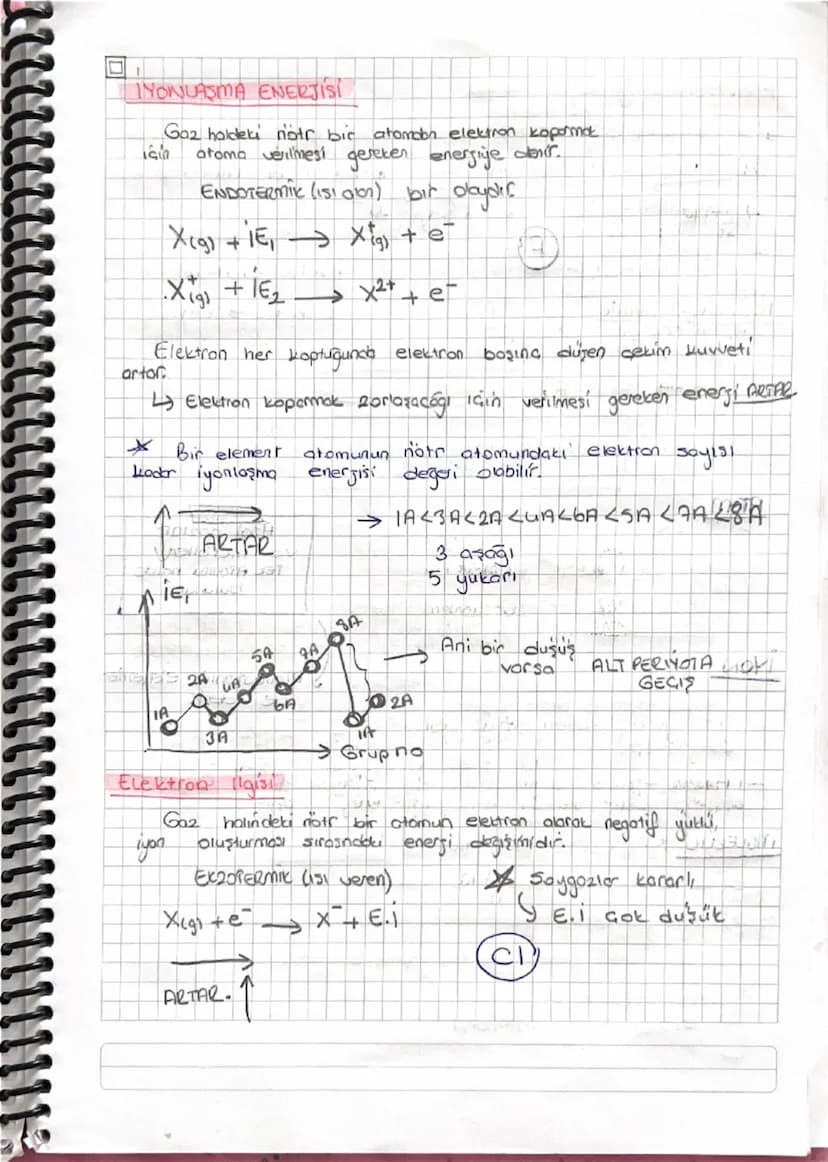 İYONLAŞMA ENERJİSİ
Gaz haldeki nötr bir atomdan elektron koparmak
için atoma verilmesi gereken enerjiye denir.
ENDOTERMİK (ısı alan) bir olaydır.
X(g) + İE₁ → X⁺(g) + e⁻
F
X⁺(g) + İE₂ → X²⁺ + e⁻
Elektron her koptuğunda elektron başına düşen çekim kuvveti
artar.
↳ Elektron koparmak zorlaşacağı için verilmesi gereken enerji ARTAR
* Bir element atomunun nötr atomundaki elektron sayısı
kadar iyonlaşma enerjisi değeri olabilir.
ARTAR
→ 1A<3A<2A<4A<6A<5A<7A<8A
3 aşağı
5 yukarı
İE₁
1A 2A 3A 4A 5A 6A 7A 8A 1A 2A
Grup no
→ Ani bir düşüş
varsa ALT PERİYOTA
GEÇİŞ
Elektron ilgisi
Gaz halindeki nötr bir atomun elektron alarak negatif yüklü,
iyon oluşturması sırasındaki enerji değişimidir.
EKZOTERMİK (ısı veren)
* Soygazlar kararlı
↳ E.i çok düşük
X(g) + e⁻ → X⁻ + E.İ
Cl
ARTAR.